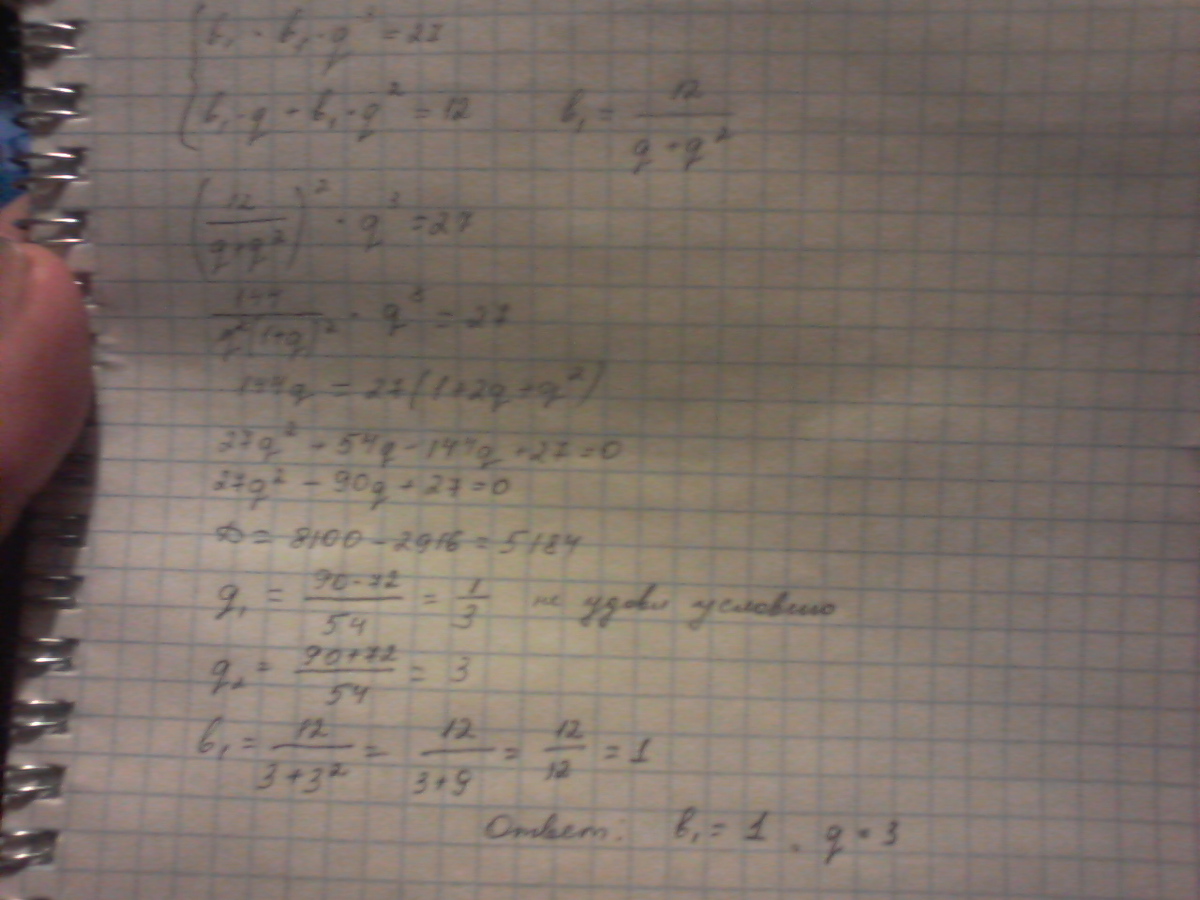 b₁ · b₁ · q³ = 27
b₁ · q + b₁ · q² = 12    b₁ = 12/(q + q²)
(12/(q+q²))² · q³ = 27
144/(q²(1+q)²) · q³ = 27
144q = 27(1+2q+q²)
27q² + 54q - 144q + 27 = 0
27q² - 90q + 27 = 0
D = 8100 - 2916 = 5184
q₁ = (90-72)/54 = 1/3 не удовл условию
q₂ = (90+72)/54 = 3
b₁ = 12/(3+3²) = 12/(3+9) = 12/12 = 1
Ответ: b₁ = 1, q = 3